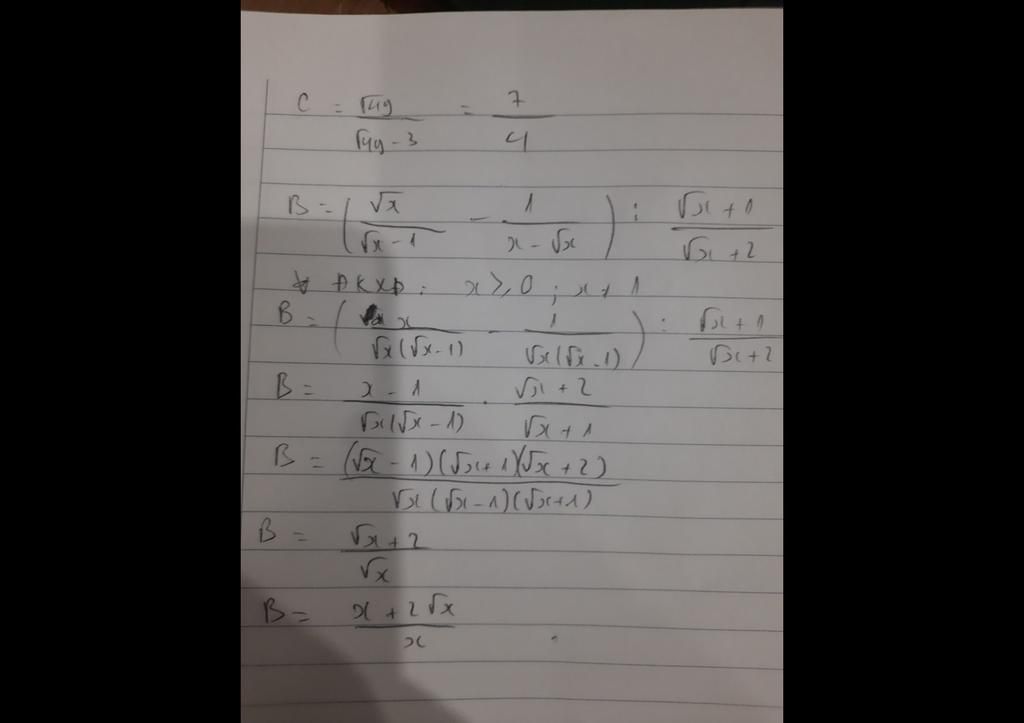 C = √49 / (√49 - 3) = 7 / 4
B = ( √x / (√x - 1) - 1 / (x - √x) ) : (√x + 1) / (√x + 2)
ĐKXĐ : x ≥ 0 ; x ≠ 1
B = ( x / (√x(√x - 1)) - 1 / (√x(√x - 1)) ) : (√x + 1) / (√x + 2)
B = (x - 1) / (√x(√x - 1)) . (√x + 2) / (√x + 1)
B = (√x - 1)(√x + 1)(√x + 2) / (√x (√x - 1)(√x + 1))
B = (√x + 2) / √x
B = (x + 2√x) / x